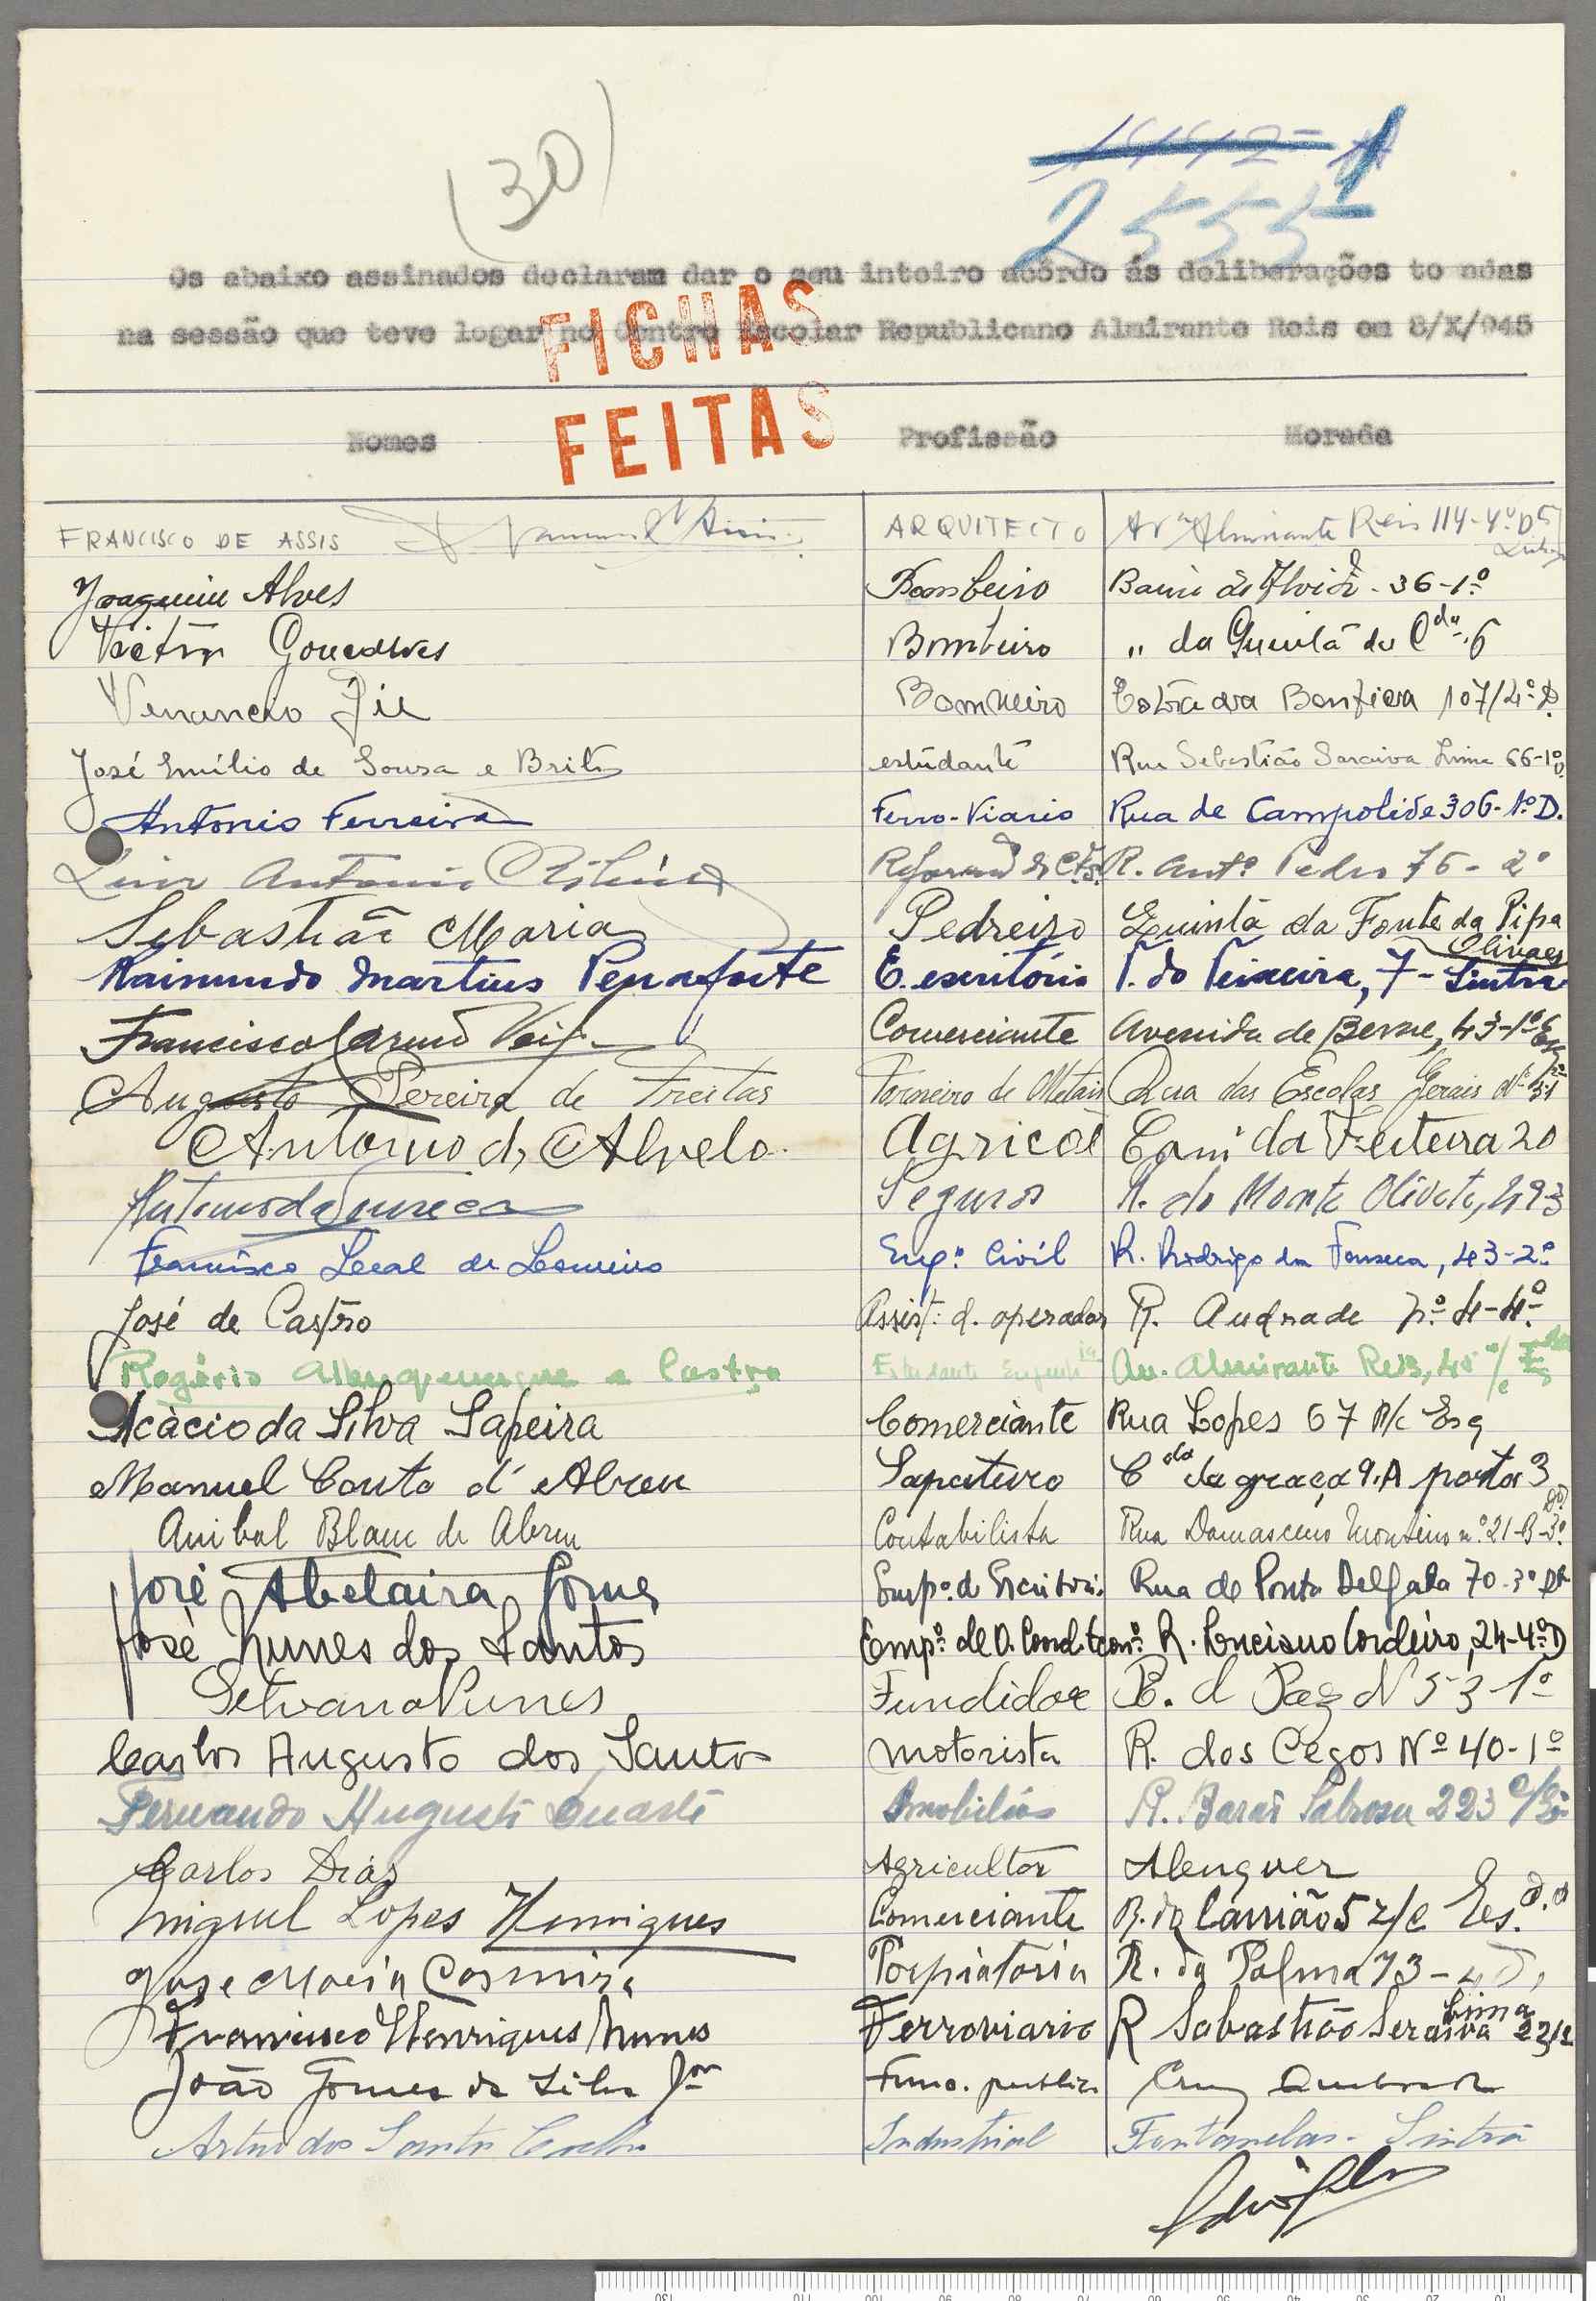 (30)
2555
Os abaixo assinados declaram dar o seu inteiro acôrdo ás deliberações to adas
na sessão que teve logar no Centro Escolar Republicano Almirante Reis em 8/X/945
FICHAS
FEITAS
Nomes Profissão Morada
FRANCISCO DE ASSIS ARQUITECTO Avª Almirante Reis 114-4º Dt
Joaquim Alves Bombeiro 36-1º
Victor Goncalves Bombeiro " da Quintã do 6
Venancio Gil Estrada Benfica 107/4º D.
José Emílio de Sousa e Brito estudante Rua Sebastião Saraiva Lima 66-1º D.
Antonio Ferreira Ferro-Viario Rua de Campolide 306-1º D.
Luis Antonio R. Antº Pedro 76-2º
Sebastião Maria Pedreiro Quintã da Fonte da Pipa
Olivaes
Raimundo Martins Penaforte E. escritório T. do Teixeira, 7-Sintra
Francisco Comerciante Avenida de Berne, 43-1º Esq
Augusto Pereira de Freitas Torneiro de Metais Rua das Escolas Gerais Nº
Antonio d. Alvelo Agricol da Feiteira 20
Antonio da Fonseca Seguros R. do Monte Olivete, 493
Francisco Leal de Engº Civil R. Rodrigo da Fonseca, 43-2º
José de Castro Assist. d. operador R. Andrade nº 4-4º
Rogério Albuquerque e Castro Estudante Av. Almirante Reis, 40
Acàcio da Silva Sapeira Comerciante Rua Lopes 67 R/c Esq
Manuel Couto d'Abreu Sapateiro Cda da graça 9.A porta 3
Anibal Blanc de Abreu Contabilista Rua Damasceno Monteiro nº 21-B-3º
José Abelaira Gomes Empº de Escritori. Rua de Ponta Delgada 70-3º Dt
José Nunes dos Santos Empº de R. Luciano Cordeiro, 24-4º D
Silvano Nunes Fundidor R. d Paz N 53-1º
Carlos Augusto dos Santos motorista R. dos Cegos Nº 40-1º
Fernando Augusto Duarte R. Barão Sabrosa 223
Carlos Dias Agricultor Alenquer
Miguel Lopes Henriques Comerciante R. do Carrião 5 r/c Es.
Jose Maria Casmiro R. da Palma 73-
Francisco Henriques Nunes Ferroviario R Sabastião Seraiva Lima
João Gomes da Silva Jor Func. publico Cruz Quebrada
Artur dos Santos Coelho Industrial Fontanelas-Sintra